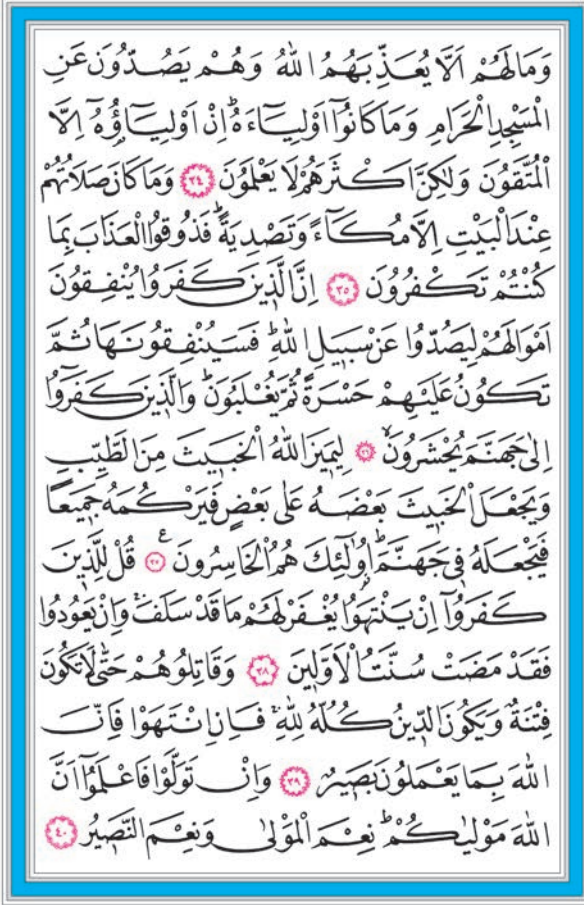 وَمَا لَهُمْ اَلَّا يُعَذِّبَهُمُ اللّٰهُ وَهُمْ يَصُدُّونَ عَنِ
الْمَسْجِدِ الْحَرَامِ وَمَا كَانُٓوا اَوْلِيَٓاءَهُۜ اِنْ اَوْلِيَٓاؤُ۬هُٓ اِلَّا
الْمُتَّقُونَ وَلٰكِنَّ اَكْثَرَهُمْ لَا يَعْلَمُونَ ﴿٣٤﴾ وَمَا كَانَ صَلَاتُهُمْ
عِنْدَ الْبَيْتِ اِلَّا مُكَٓاءً وَتَصْدِيَةًۜ فَذُوقُوا الْعَذَابَ بِمَا
كُنْتُمْ تَكْفُرُونَ ﴿٣٥﴾ اِنَّ الَّذ۪ينَ كَفَرُوا يُنْفِقُونَ
اَمْوَالَهُمْ لِيَصُدُّوا عَنْ سَب۪يلِ اللّٰهِۜ فَسَيُنْفِقُونَهَا ثُمَّ
تَكُونُ عَلَيْهِمْ حَسْرَةً ثُمَّ يُغْلَبُونَۜ وَالَّذ۪ينَ كَفَرُٓوا
اِلٰى جَهَنَّمَ يُحْشَرُونَۙ ﴿٣٦﴾ لِيَم۪يزَ اللّٰهُ الْخَب۪يثَ مِنَ الطَّيِّبِ
وَيَجْعَلَ الْخَب۪يثَ بَعْضَهُ عَلٰى بَعْضٍ فَيَرْكُمَهُ جَم۪يعًا
فَيَجْعَلَهُ ف۪ي جَهَنَّمَۜ اُو۬لٰٓئِكَ هُمُ الْخَاسِرُونَ ﴿٣٧﴾ ع قُلْ لِلَّذ۪ينَ
كَفَرُٓوا اِنْ يَنْتَهُوا يُغْفَرْ لَهُمْ مَا قَدْ سَلَفَۚ وَاِنْ يَعُودُوا
فَقَدْ مَضَتْ سُنَّتُ الْاَوَّل۪ينَ ﴿٣٨﴾ وَقَاتِلُوهُمْ حَتّٰى لَا تَكُونَ
فِتْنَةٌ وَيَكُونَ الدّ۪ينُ كُلُّهُ لِلّٰهِۚ فَاِنِ انْتَهَوْا فَاِنَّ
اللّٰهَ بِمَا يَعْمَلُونَ بَص۪يرٌ ﴿٣٩﴾ وَاِنْ تَوَلَّوْا فَاعْلَمُٓوا اَنَّ
اللّٰهَ مَوْلٰيكُمْۜ نِعْمَ الْمَوْلٰى وَنِعْمَ النَّص۪يرُ ﴿٤٠﴾